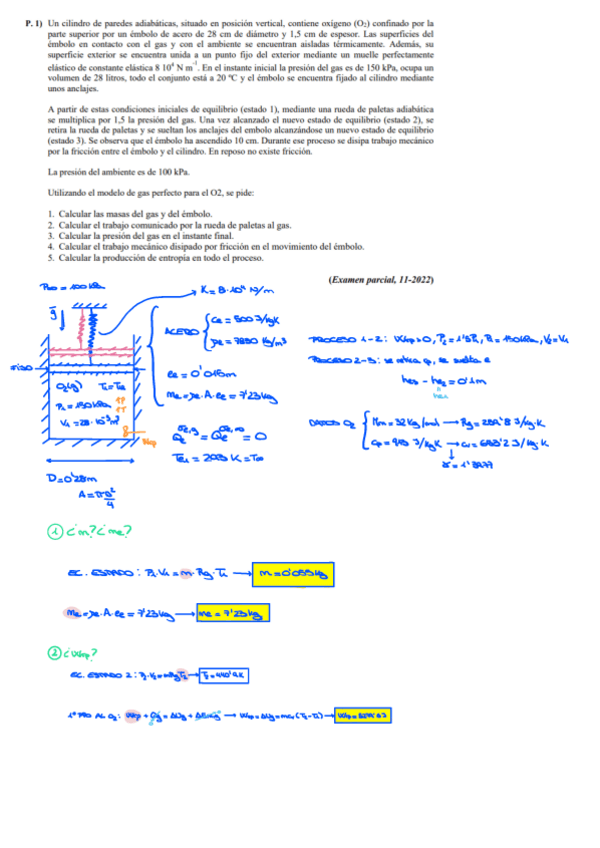 P. 1) Un cilindro de paredes adiabáticas, situado en posición vertical, contiene oxígeno (O₂) confinado por la
parte superior por un émbolo de acero de 28 cm de diámetro y 1,5 cm de espesor. Las superficies del
émbolo en contacto con el gas y con el ambiente se encuentran aisladas térmicamente. Además, su
superficie exterior se encuentra unida a un punto fijo del exterior mediante un muelle perfectamente
elástico de constante elástica 8 10⁴ N m⁻¹. En el instante inicial la presión del gas es de 150 kPa, ocupa un
volumen de 28 litros, todo el conjunto está a 20 ºC y el émbolo se encuentra fijado al cilindro mediante
unos anclajes.
A partir de estas condiciones iniciales de equilibrio (estado 1), mediante una rueda de paletas adiabática
se multiplica por 1,5 la presión del gas. Una vez alcanzado el nuevo estado de equilibrio (estado 2), se
retira la rueda de paletas y se sueltan los anclajes del embolo alcanzándose un nuevo estado de equilibrio
(estado 3). Se observa que el émbolo ha ascendido 10 cm. Durante ese proceso se disipa trabajo mecánico
por la fricción entre el émbolo y el cilindro. En reposo no existe fricción.
La presión del ambiente es de 100 kPa.
Utilizando el modelo de gas perfecto para el O2, se pide:
1. Calcular las masas del gas y del émbolo.
2. Calcular el trabajo comunicado por la rueda de paletas al gas.
3. Calcular la presión del gas en el instante final.
4. Calcular el trabajo mecánico disipado por fricción en el movimiento del émbolo.
5. Calcular la producción de entropía en todo el proceso.
(Examen parcial, 11-2022)
P∞ = 100 kPa
K = 8·10⁴ N/m
g
ACERO
ce = 500 J/kgK
ρe = 7850 kg/m³
ee = 0'015m
me = ρe·A·ee = 7'23kg
Te1 = 293 K = T∞
O₂(g) T1 = T∞
P1 = 150kPa
V1 = 28·10⁻³m³
Wρ
D = 0'28m
A = π·D²/4
PROCESO 1-2: Wrp > 0, P2 = 1'5P1, P1 = 150kPa, V2 = V1
PROCESO 2-3:
he3 - he2 = 0'1m
he1
DATOS O₂
Mm = 32 kg/kmol → Rg = 259'8 J/kg·K
① ¿m? ¿me?
EC. ESTADO: P1·V1 = m·Rg·T1 → m = 0'055kg
me = ρe·A·ee = 7'23kg → me = 7'23kg
② ¿Wrp?
EC. ESTADO 2: P2·V2 = mRgT2 → T2 =